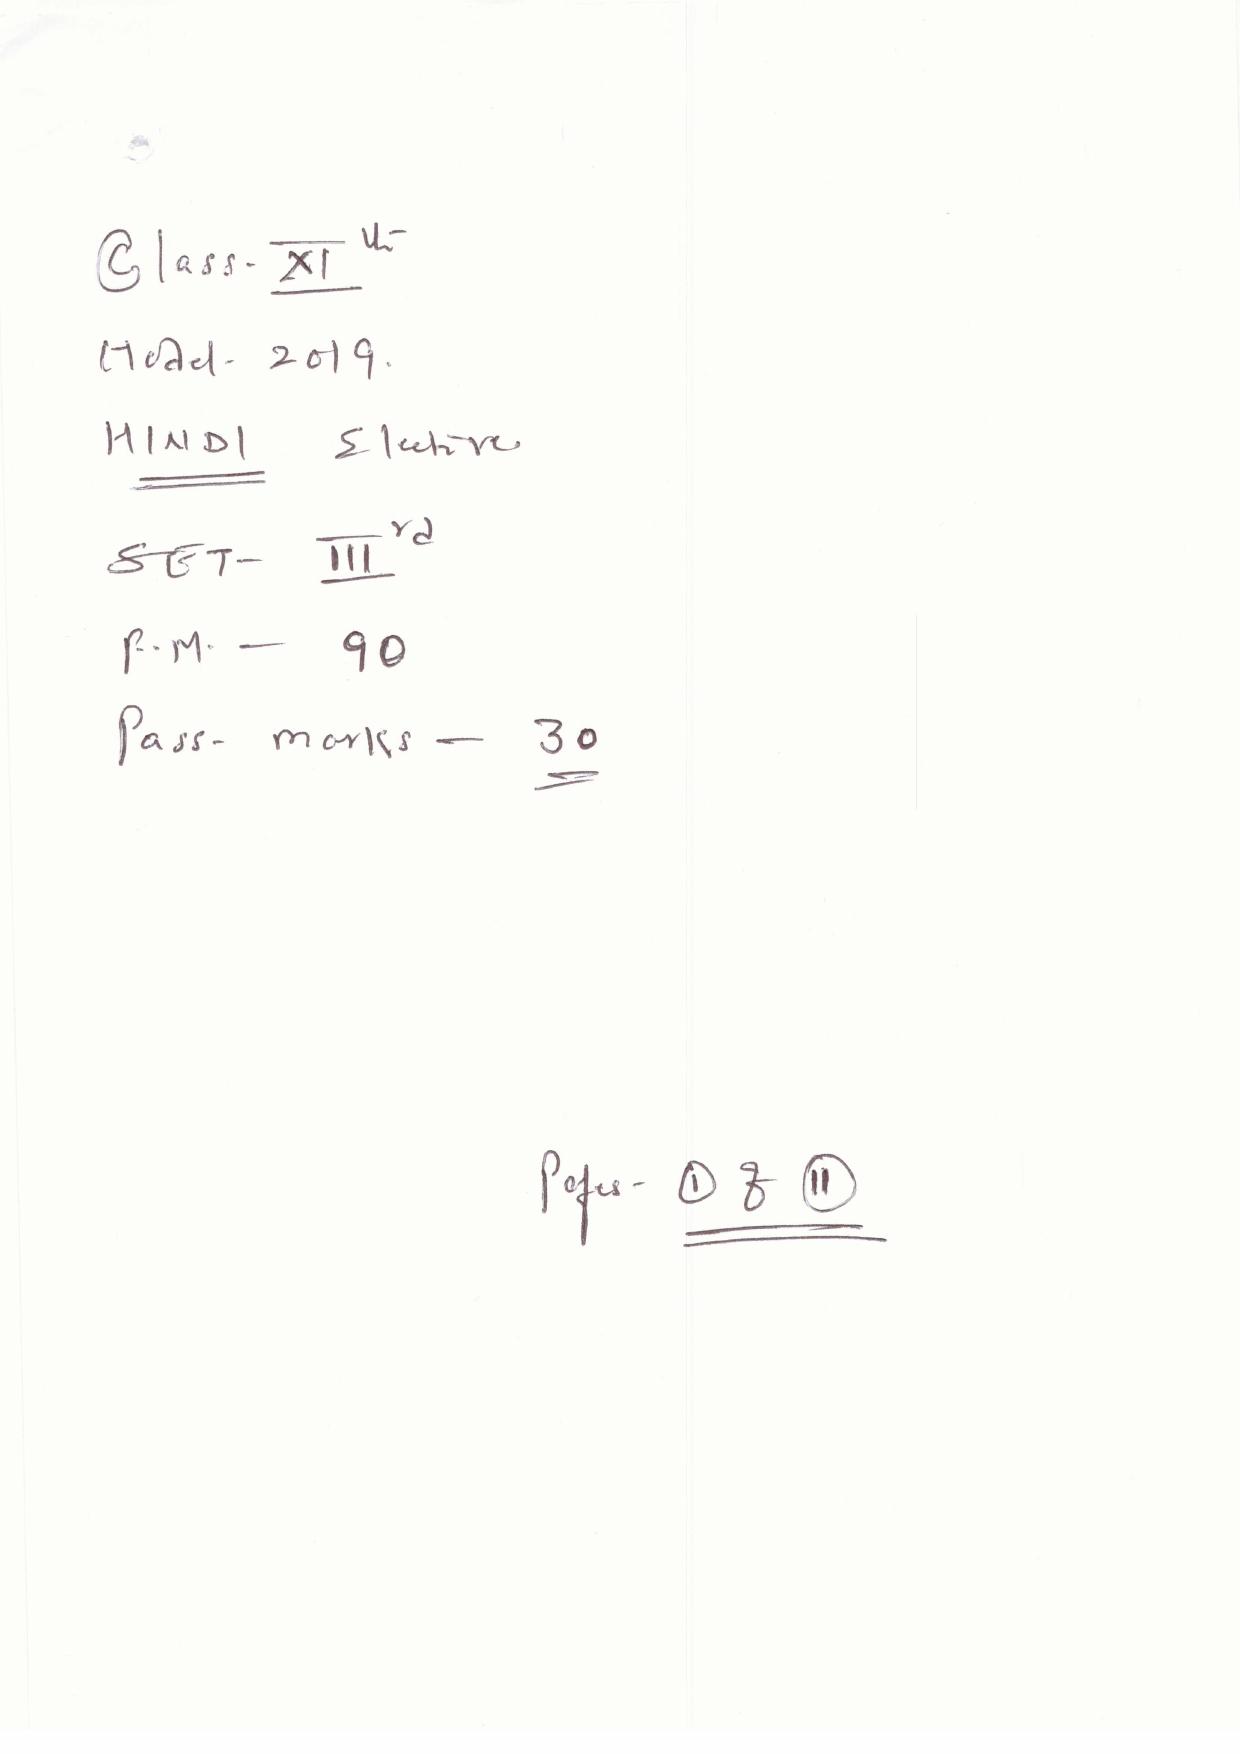 Class- XI th
Model- 2019.
HINDI Elective
SET- III rd
F.M. — 90
Pass- marks — 30
Paper- I & II